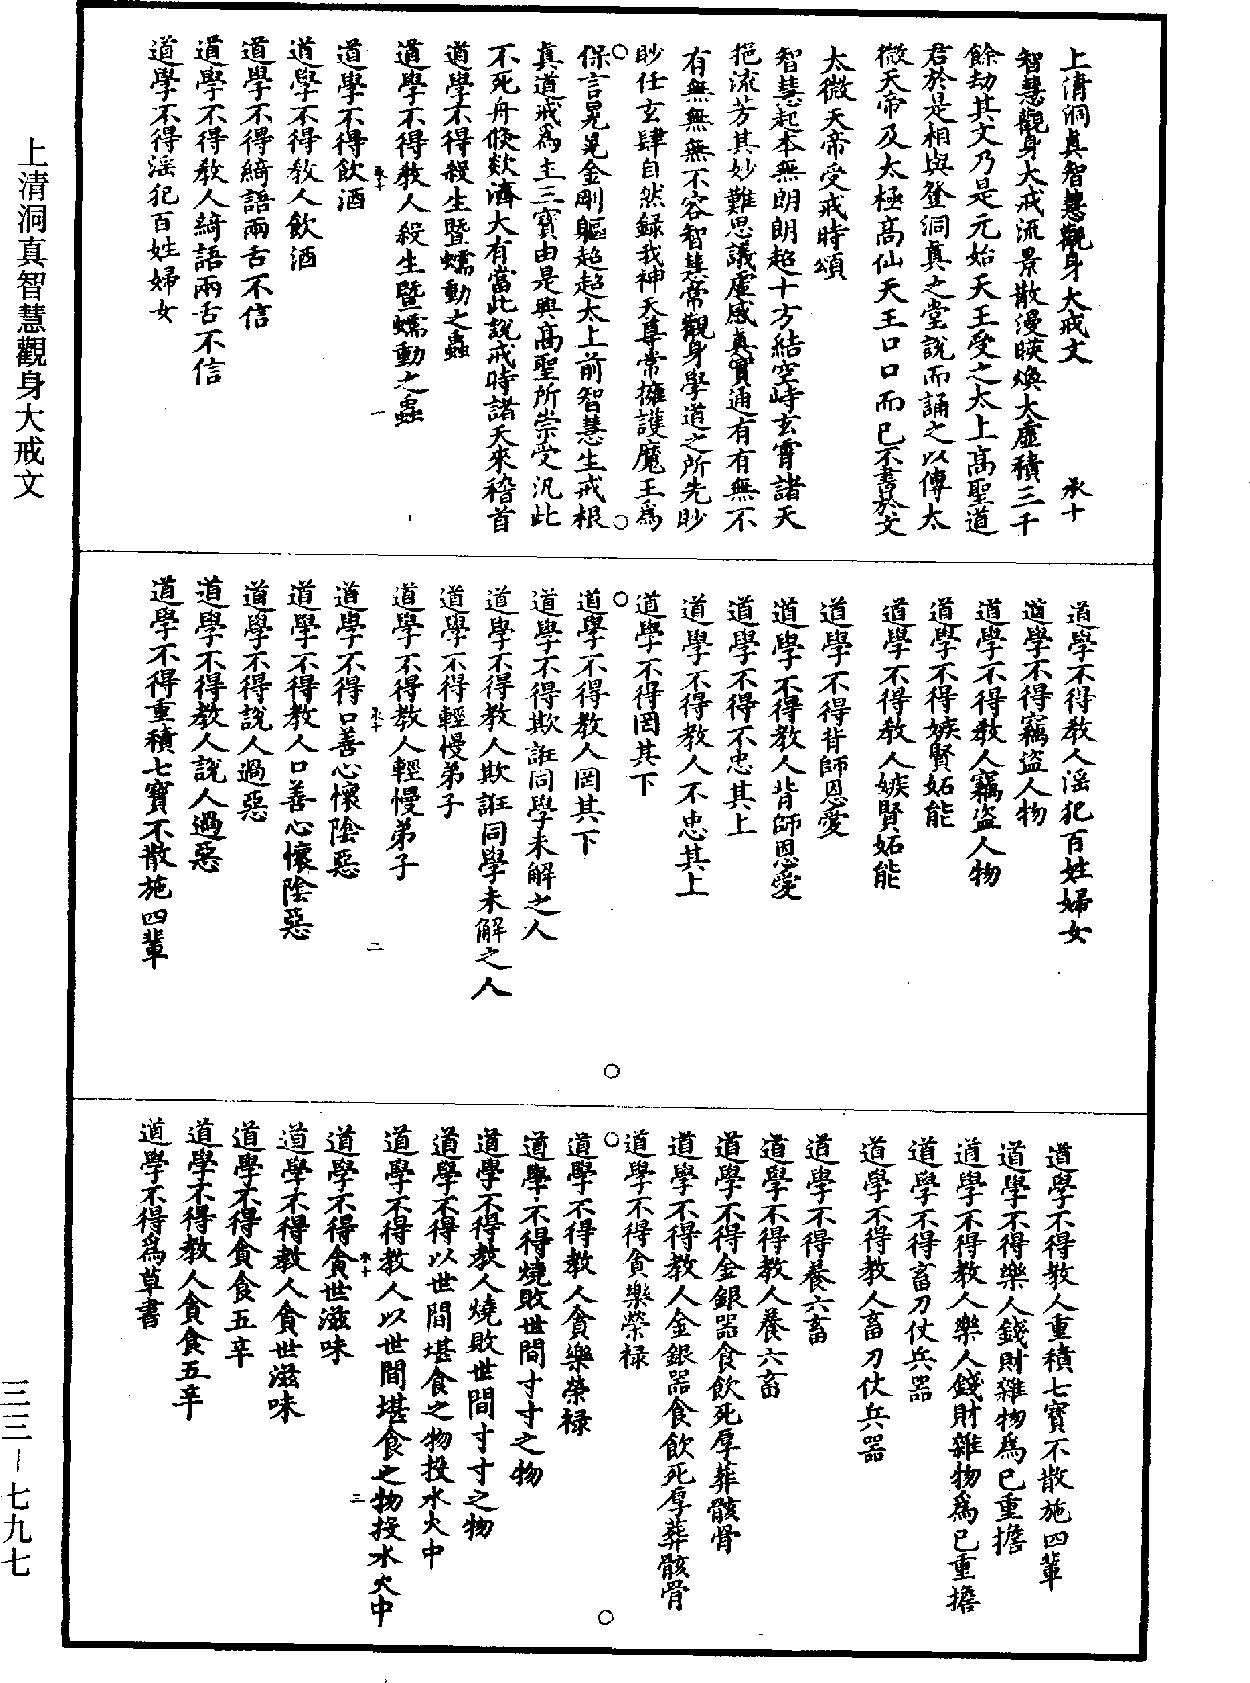 上清洞真智慧觀身大戒文　承十
智慧觀身大戒流景散漫暎煥太虛積三千
餘劫其文乃是元始天王受之太上高聖道
君於是相與登洞真之堂說而誦之以傳太
微天帝及太極高仙天王口口而已不書於文
太微天帝受戒時頌
智慧起本無朗朗超十方結空峙玄霄諸天
挹流芳其妙難思議虛感真實通有有無不
有無無無不容智慧常觀身學道之所先眇
眇任玄肆自然録我神天尊常擁護魔王為
保言晃晃金剛軀超超太上前智慧生戒根
真道戒為主三寶由是興高聖所崇受汎此
不死舟倏欻濟大有當此說戒時諸天來稽首
道學不得殺生暨蠕動之蟲
道學不得教人殺生暨蠕動之蟲
承十　一
道學不得飲酒
道學不得教人飲酒
道學不得綺語兩舌不信
道學不得教人綺語兩舌不信
道學不得淫犯百姓婦女
道學不得教人淫犯百姓婦女
道學不得竊盜人物
道學不得教人竊盜人物
道學不得嫉賢妬能
道學不得教人嫉賢妬能
道學不得背師恩愛
道學不得教人背師恩愛
道學不得不忠其上
道學不得教人不忠其上
道學不得罔其下
道學不得教人罔其下
道學不得欺誑同學未解之人
道學不得教人欺誑同學未解之人
道學不得輕慢弟子
道學不得教人輕慢弟子
承十　二
道學不得口善心懷陰惡
道學不得教人口善心懷陰惡
道學不得說人過惡
道學不得教人說人過惡
道學不得重積七寶不散施四輩
道學不得教人重積七寶不散施四輩
道學不得樂人錢財雜物為己重擔
道學不得教人樂人錢財雜物為己重擔
道學不得畜刀仗兵器
道學不得教人畜刀仗兵器
道學不得養六畜
道學不得教人養六畜
道學不得金銀器食飲死厚葬骸骨
道學不得教人金銀器食飲死厚葬骸骨
道學不得貪樂榮祿
道學不得教人貪樂榮祿
道學不得燒敗世間寸寸之物
道學不得教人燒敗世間寸寸之物
道學不得以世間堪食之物投水火中
道學不得教人以世間堪食之物投水火中
承十　三
道學不得貪世滋味
道學不得教人貪世滋味
道學不得貪食五辛
道學不得教人貪食五辛
道學不得為草書
上清洞真智慧觀身大戒文
三三－七九七